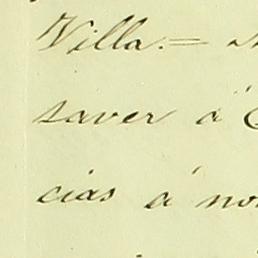 Villa.=
saver á
cias á no